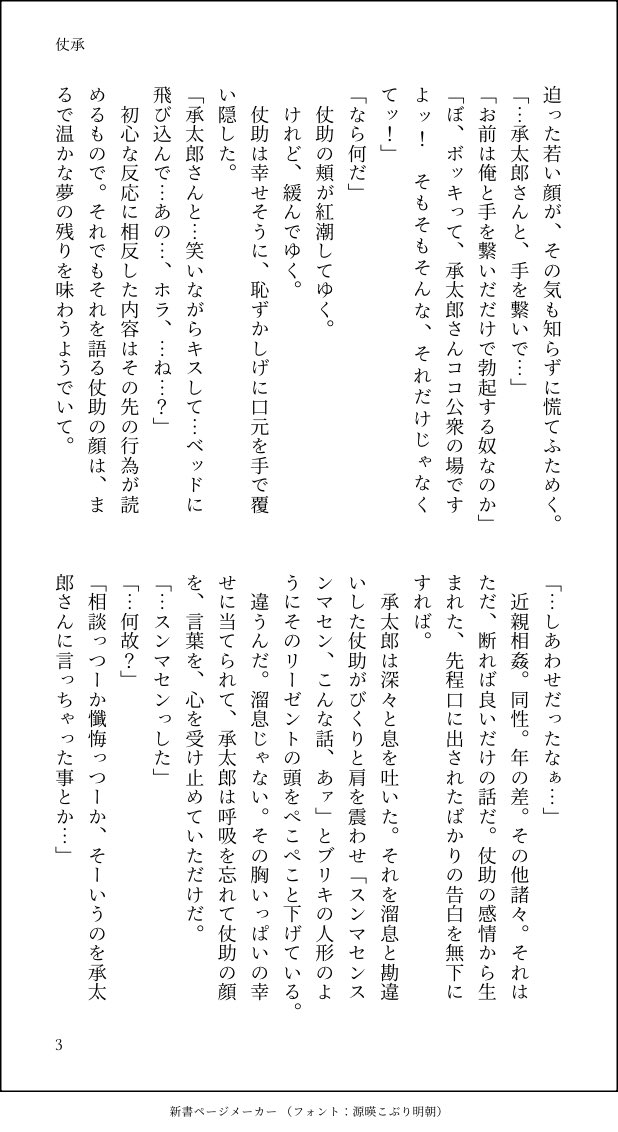 仗承
迫った若い顔が、その気も知らずに慌てふためく。
「…承太郎さんと、手を繋いで…」
「お前は俺と手を繋いだだけで勃起する奴なのか」
「ぼ、ボッキって、承太郎さんココ公衆の場です
よッ！　そもそもそんな、それだけじゃなく
てッ！」
「なら何だ」
　仗助の頬が紅潮してゆく。
けれど、緩んでゆく。
　仗助は幸せそうに、恥ずかしげに口元を手で覆
い隠した。
「承太郎さんと…笑いながらキスして…ベッドに
飛び込んで…あの…、ホラ、…ね…？」
　初心な反応に相反した内容はその先の行為が読
めるもので。それでもそれを語る仗助の顔は、ま
るで温かな夢の残りを味わうようでいて。
「…しあわせだったなぁ…」
　近親相姦。同性。年の差。その他諸々。それは
ただ、断れば良いだけの話だ。仗助の感情から生
まれた、先程口に出されたばかりの告白を無下に
すれば。
　承太郎は深々と息を吐いた。それを溜息と勘違
いした仗助がびくりと肩を震わせ「スンマセンス
ンマセン、こんな話、あァ」とブリキの人形のよ
うにそのリーゼントの頭をぺこぺこと下げている。
　違うんだ。溜息じゃない。その胸いっぱいの幸
せに当てられて、承太郎は呼吸を忘れて仗助の顔
を、言葉を、心を受け止めていただけだ。
「…スンマセンっした」
「…何故？」
「相談っつーか懺悔っつーか、そーいうのを承太
郎さんに言っちゃった事とか…」
3
新書ページメーカー（フォント：源暎こぶり明朝）